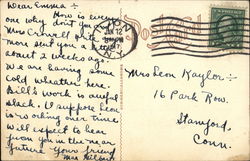 Dear Emma :-
How is every
one why don't you
Mrs Cornell
more sent you a
about a weeks ago.
We are having some
cold weather here.
Bill's work is awful
slack. I suppose Leon
is working over time
Will expect to hear
from you in the near
future your friend
Mrs
JAN 12
Post Card
Mrs Leon Kaylor :-
16 Park Row.
Stamford,
Conn.